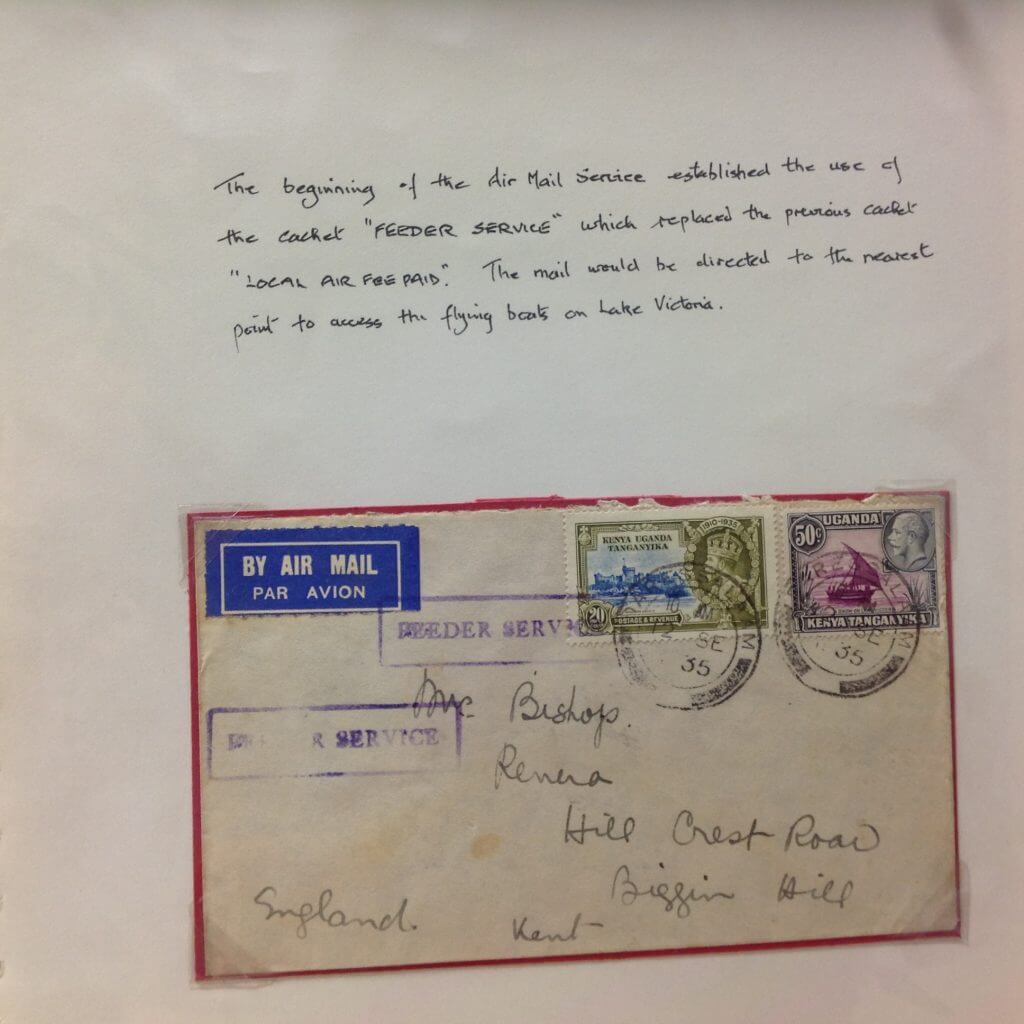 The beginning of the Air Mail Service established the use of
the cachet "FEEDER SERVICE" which replaced the previous cachet
"LOCAL AIR FEE PAID". The mail would be directed to the nearest
point to access the flying boats on Lake Victoria.
BY AIR MAIL
PAR AVION
KENYA UGANDA
TANGANYIKA
1910-1935
20
POSTAGE & REVENUE
UGANDA
50c
KENYA TANGANYIKA
SE
35
SE
35
FEEDER SERVICE
FEEDER SERVICE
Bishop.
Renera
Hill Crest Road
Biggin Hill
Kent
England.